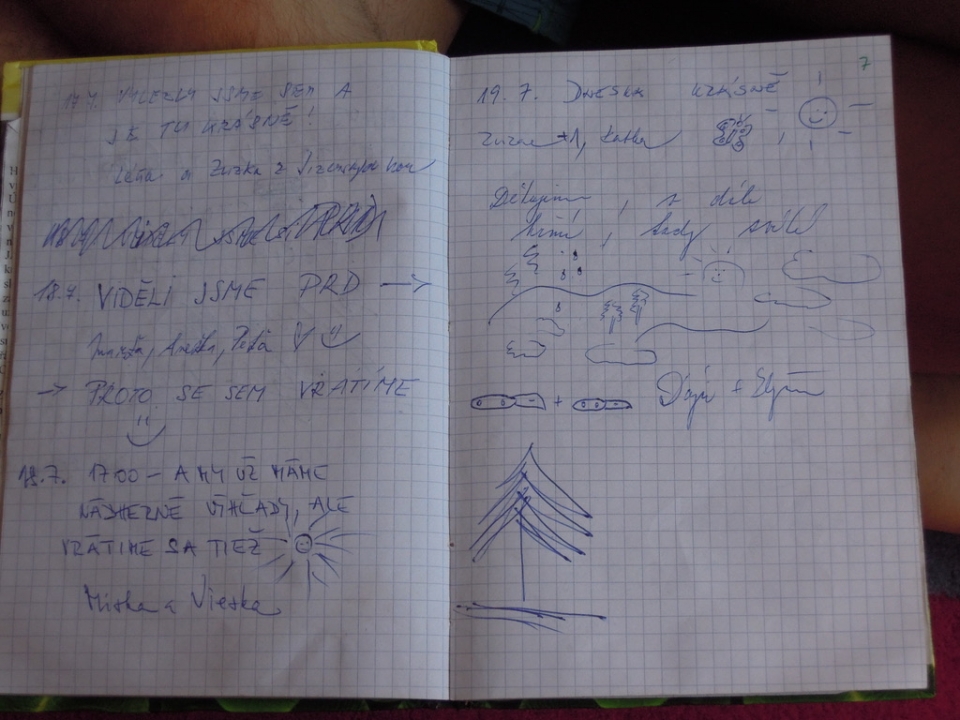 17.7. VYLEZLY JSME SEM A
JE TU KRÁSNĚ!
Léňa a Zuzka z
18.7. VIDĚLI JSME PRD →
Anežka, Péťa
→ PROTO SE SEM VRÁTÍME
18.7. 17:00 – A MY UŽ MÁME
NÁDHERNÉ VÝHĽADY, ALE
VRÁTIME SA TIEŽ
Miška a Vierka
7
19.7. DNESKA KRÁSNĚ
Zuzana + A, Katka
Děkujem, z dále
hřmí, tady svítí
+